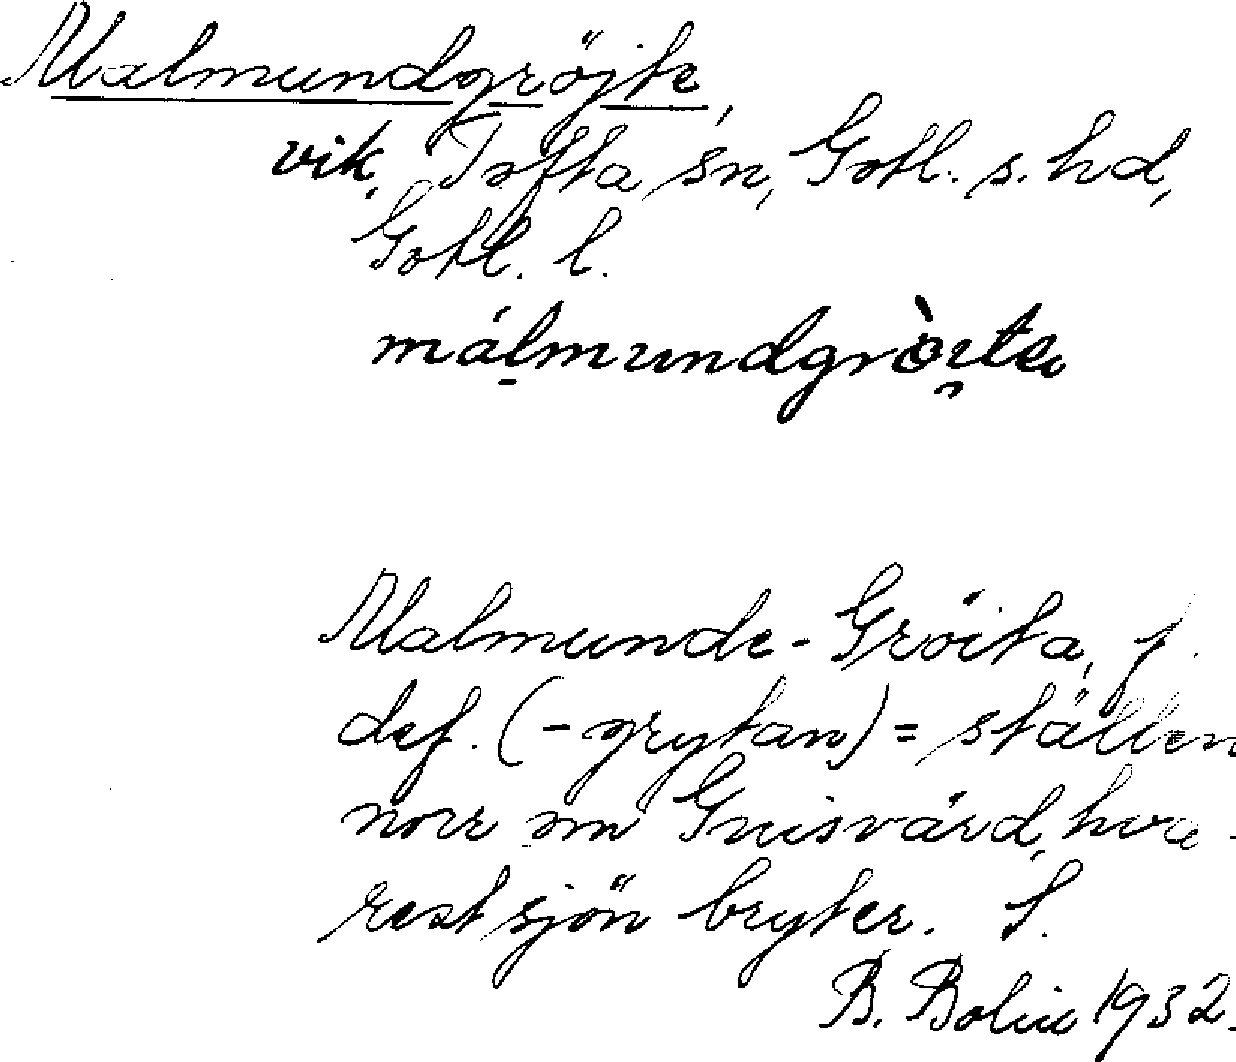 Malmundgröjte,
vik, Tofta sn, Gotl. s. hd,
Gotl. l.
málmundgròite
Malmunde-Gröita, f.
def. (-grytan) = ställen
norr om Gnisvärd, hva-
rest sjön bryter. S.
B. Bolin 1932.